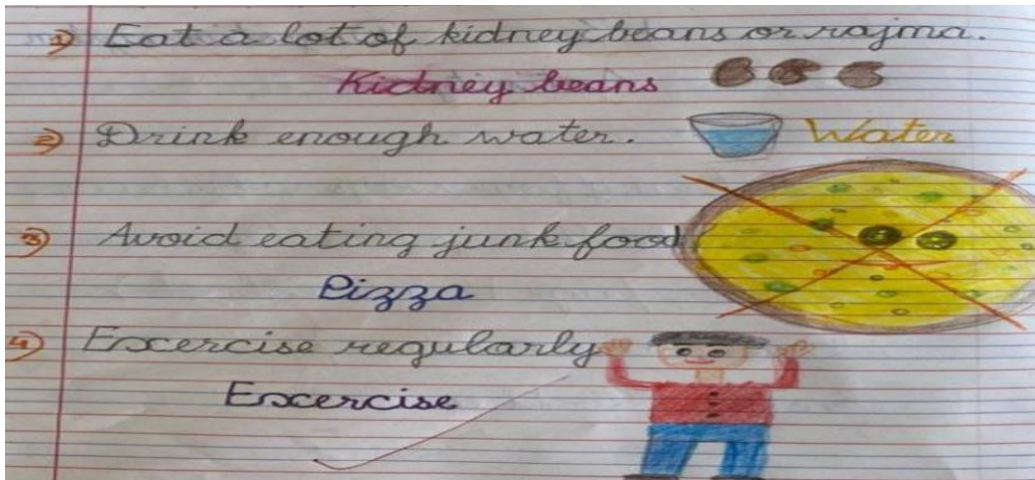 1) Eat a lot of kidney beans or rajma.
Kidney beans
2) Drink enough water. Water
3) Avoid eating junk food
Pizza
4) Excercise regularly
Excercise